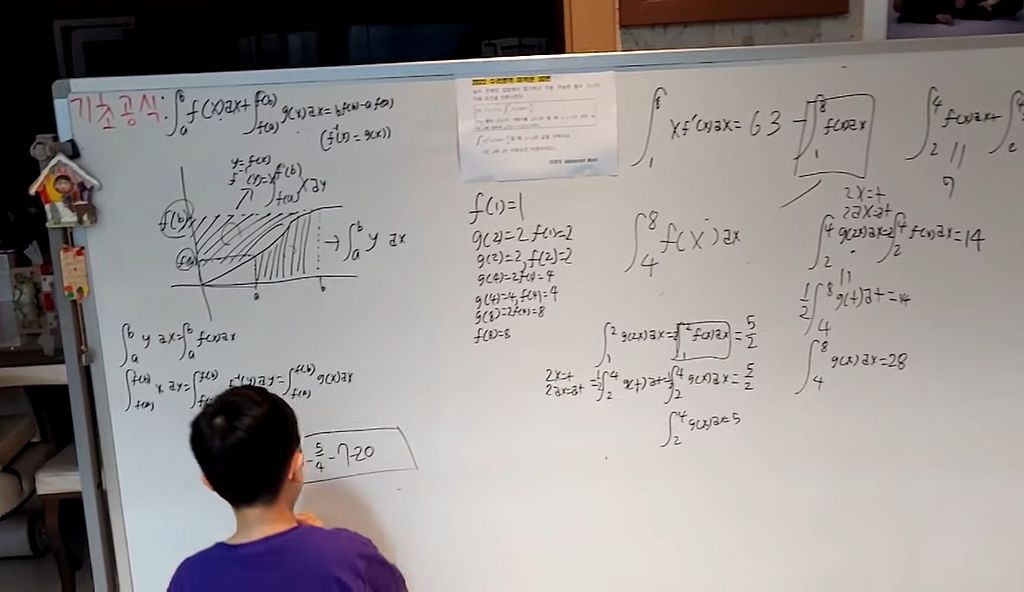 기초공식: ∫_a^b f(x)dx + ∫_{f(a)}^{f(b)} g(x)dx = bf(b)-af(a)
(f⁻¹(x) = g(x))
y=f(x)
f(b)
f(a)
∫_{f(a)}^{f(b)} x dy
→ ∫_a^b y dx
a
b
∫_a^b y dx = ∫_a^b f(x)dx
∫_{f(a)}^{f(b)} x dy =
= ∫_{f(a)}^{f(b)} g(x)dx
- 5/4 - 7 - 20
f(1)=1
g(2)=2f(1)=2
g(2)=2, f(2)=2
g(4)=2f(2)=4
g(4)=4, f(4)=4
g(8)=2f(4)=8
f(8)=8
∫_1^8 xf'(x)dx = 63 - ∫_1^8 f(x)dx
∫_4^8 f(x)dx
∫_1^2 g(2x)dx = 2∫_1^2 f(x)dx = 5/2
2x=t
2dx=dt
= 1/2 ∫_2^4 g(t)dt = 1/2 ∫_2^4 g(x)dx = 5/2
∫_2^4 g(x)dx = 5
∫_2^4 f(x)dx +
7
2x=t
2dx=dt
∫_2^4 g(2x)dx = 2∫_2^4 f(x)dx = 14
1/2 ∫_4^8 g(t)dt = 14
∫_4^8 g(x)dx = 28